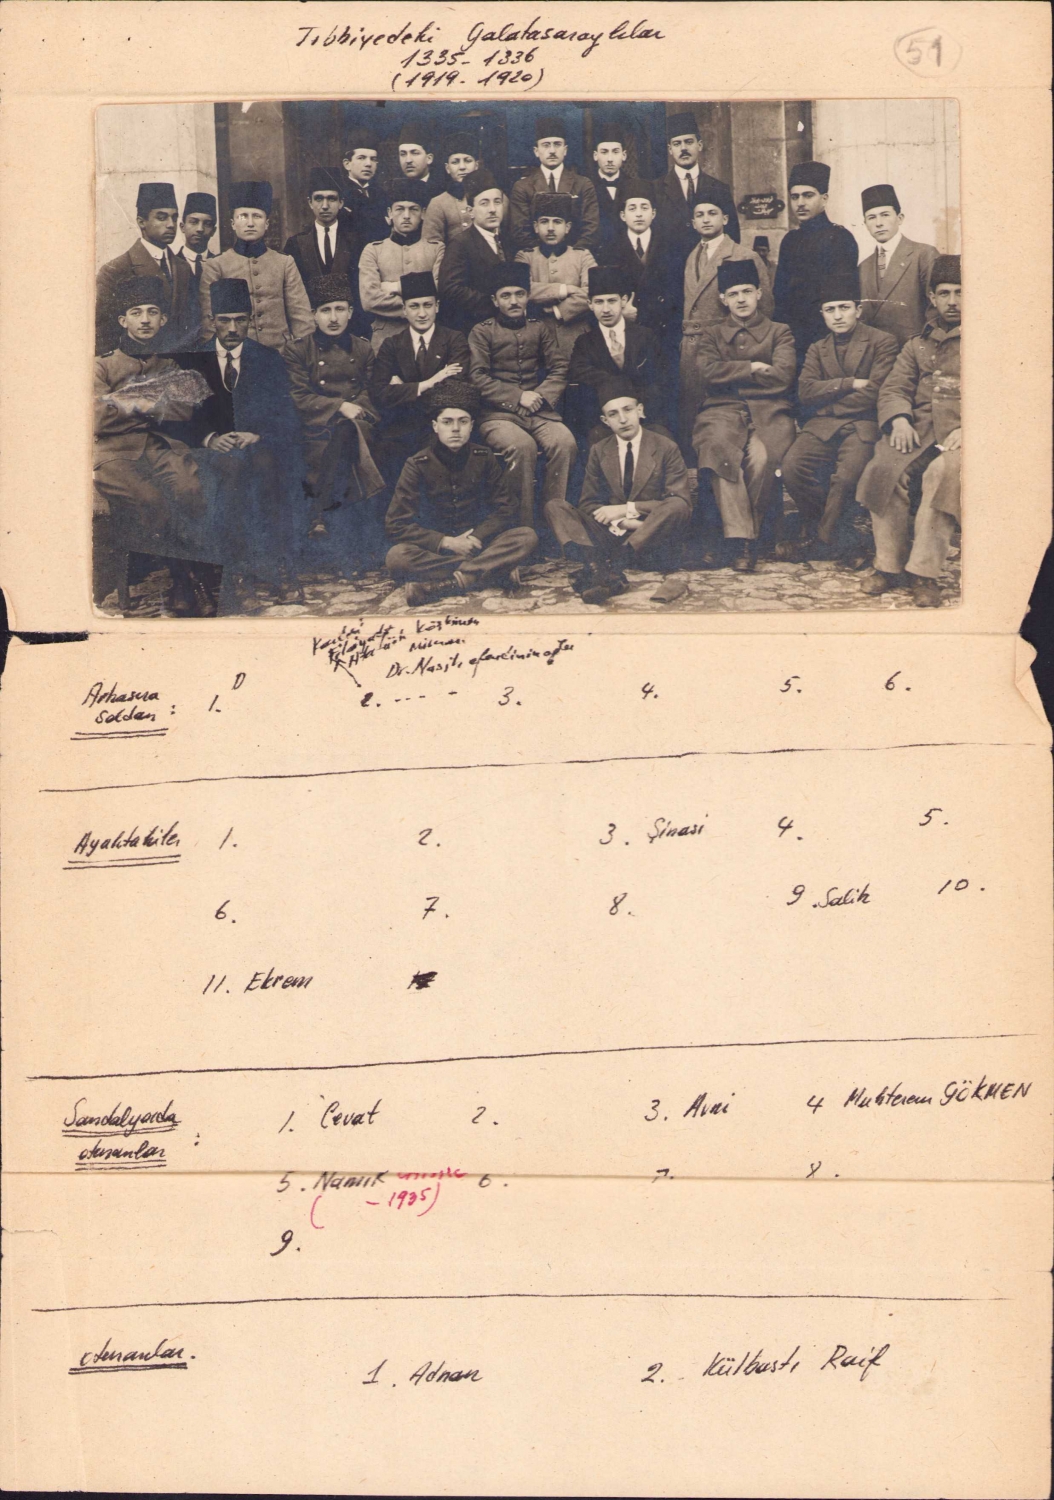 Tıbbiyedeki Galatasaraylılar
51
1335-1336
(1919-1920)
Dr. Nasit
Arkasıra
soldan :
1. D 2. --- - 3. 4. 5. 6.
Ayaktakiler 1. 2. 3. Şinasi 4. 5.
6. 7. 8. 9. Salih 10.
11. Ekrem
Sandalyada
oturanlar :
1. Cevat 2. 3. Avni 4 Muhterem GÖKMEN
5. Namık 6. 7. 8.
( - 1935)
9.
oturanlar.
1. Adnan 2. Külbastı Raif